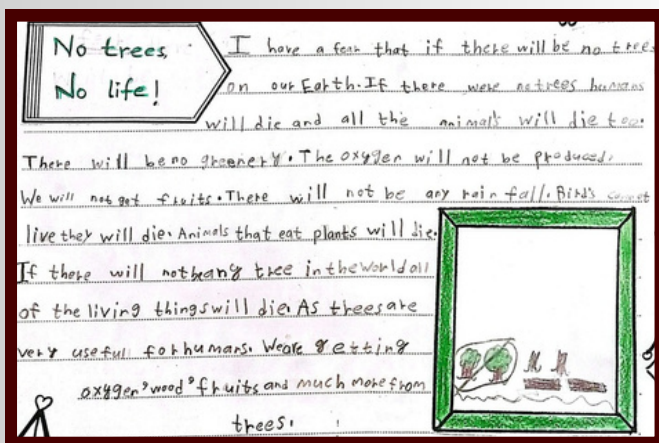 No trees,
No life!
I have a fear that if there will be no trees
on our Earth. If there were no trees humans
will die and all the animals will die too.
There will be no greenery. The oxygen will not be produced.
We will not get fruits. There will not be any rain fall. Bird's cannot
live they will die. Animals that eat plants will die.
If there will not beany tree in the world all
of the living things will die. As trees are
very usefull for humans. We are getting
oxygen, wood, fruits and much more from
trees.